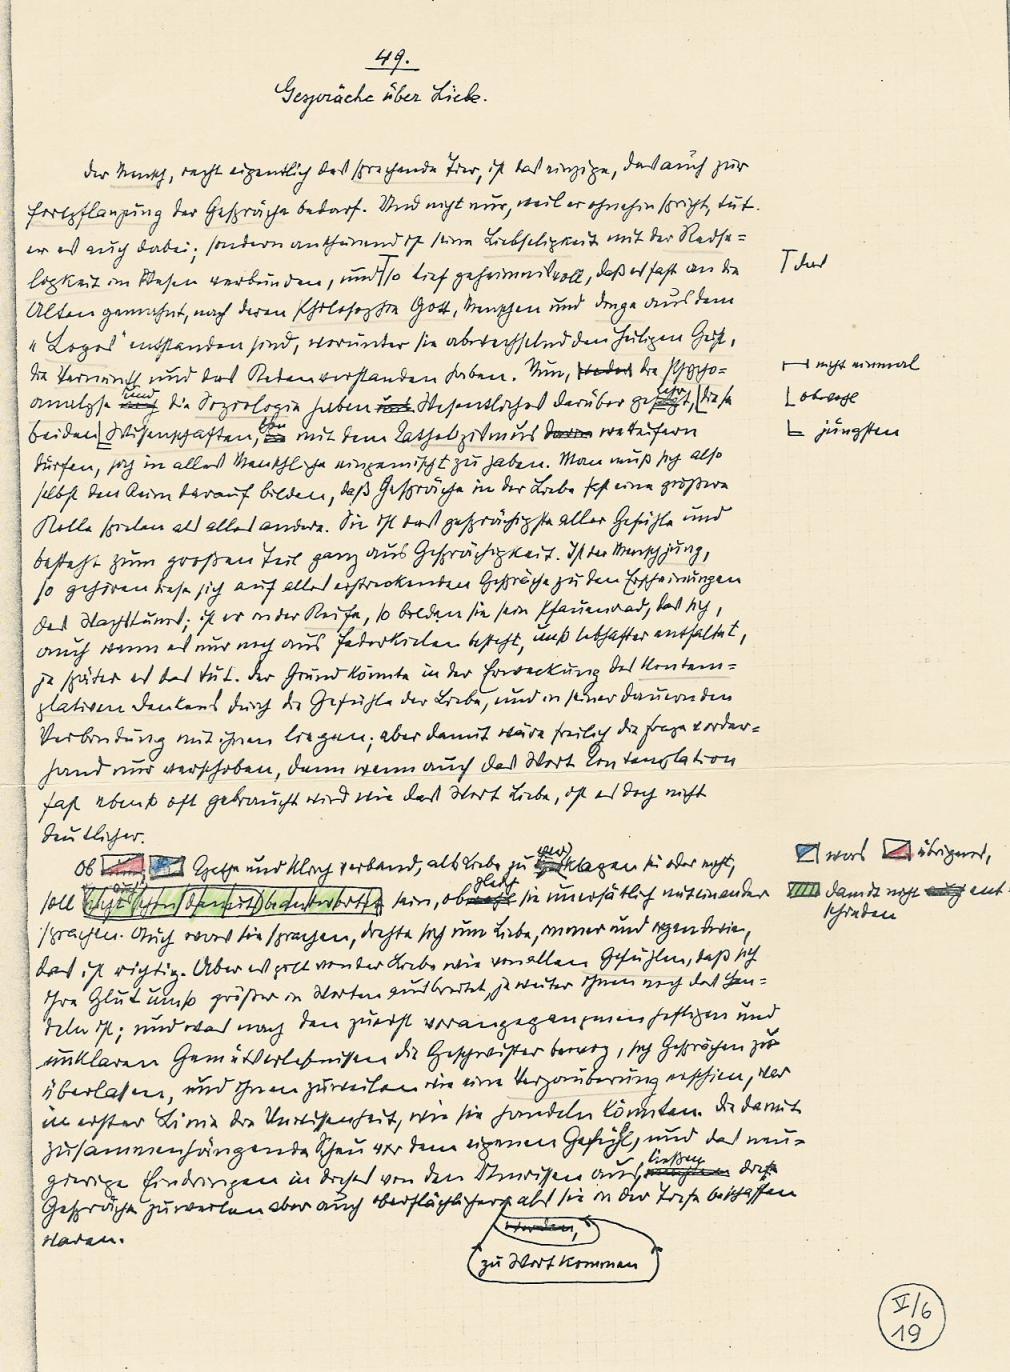 49.
Gespräche über Liebe.
Der Mensch, recht eigentlich das sprechende Tier, ist das einzige, das auch zur
Fortpflanzung der Gespräche bedarf. Und nicht nur, weil er ohnehin spricht, tut
er es auch dabei; sondern anscheinend ist seine Liebseligkeit mit der Redse=
ligkeit im Wesen verbunden, und so tief geheimnisvoll, daß es fast an die
das
Alten gemahnt, nach deren Philosophie Gott, Menschen und Dinge aus dem
„Logos" entstanden sind, worunter sie abwechselnd den Heiligen Geist,
die Vernunft und das Reden verstanden haben. Nun, die Psycho=
nicht einmal
analyse und die Soziologie haben Wesentliches darüber gelehrt, diese
obwohl
beiden Wissenschaften, mit dem Katholizismus wetteifern
jüngsten
dürfen, sich in alles Menschliche eingemischt zu haben. Man muß sich also
selbst den Reim darauf bilden, daß Gespräche in der Liebe fast eine größere
Rolle spielen als alles andere. Sie ist das gesprächigste aller Gefühle und
besteht zum großen Teil ganz aus Gesprächigkeit. Ist der Mensch jung,
so gehören diese sich auf alles erstreckenden Gespräche zu den Erscheinungen
des Wachstums; ist er in der Reife, so bilden sie sein Pfauenrad, das sich,
auch wenn es nur noch aus Federkielen besteht, umso lebhafter entfaltet,
je später es das tut. Der Grund könnte in der Erweckung des kontem=
plativen Denkens durch die Gefühle der Liebe, und in seiner dauernden
Verbindung mit ihnen liegen; aber damit wäre freilich die Frage vorder=
hand nur verschoben, denn wenn auch das Wort Kontemplation
fast ebenso oft gebraucht wird wie das Wort Liebe, ist es doch nicht
deutlicher.
Ob Agathe und Ulrich verband, als Liebe zu klagen sei oder nicht,
was übrigens,
soll sein, ob sie unersättlich miteinander
damit nicht ent=
schieden
sprachen. Auch was sie sprachen, drehte sich um Liebe, immer und irgendwie,
das ist richtig. Aber es gilt von der Liebe wie von allen Gefühlen, daß sich
ihre Glut umso größer in Worten ausbreitet, je weiter ihnen noch das Han=
deln ist; und was nach den zuerst vorangegangenen heftigen und
unklaren Gemütserlebnissen die Geschwister bewog, sich Gesprächen zu
überlassen, und ihnen zuweilen wie eine Verzauberung erschien, war
in erster Linie die Unwissenheit, wie sie handeln könnten. Die damit
zusammenhängende Scheu vor dem eigenen Gefühl, und das neu=
gierige Eindringen in dieses von den Umrissen aus, ließen diese
Gespräche zuweilen aber auch oberflächlicher als sie in der Tiefe beschaffen
zu Wort kommen
waren.
V/6
19